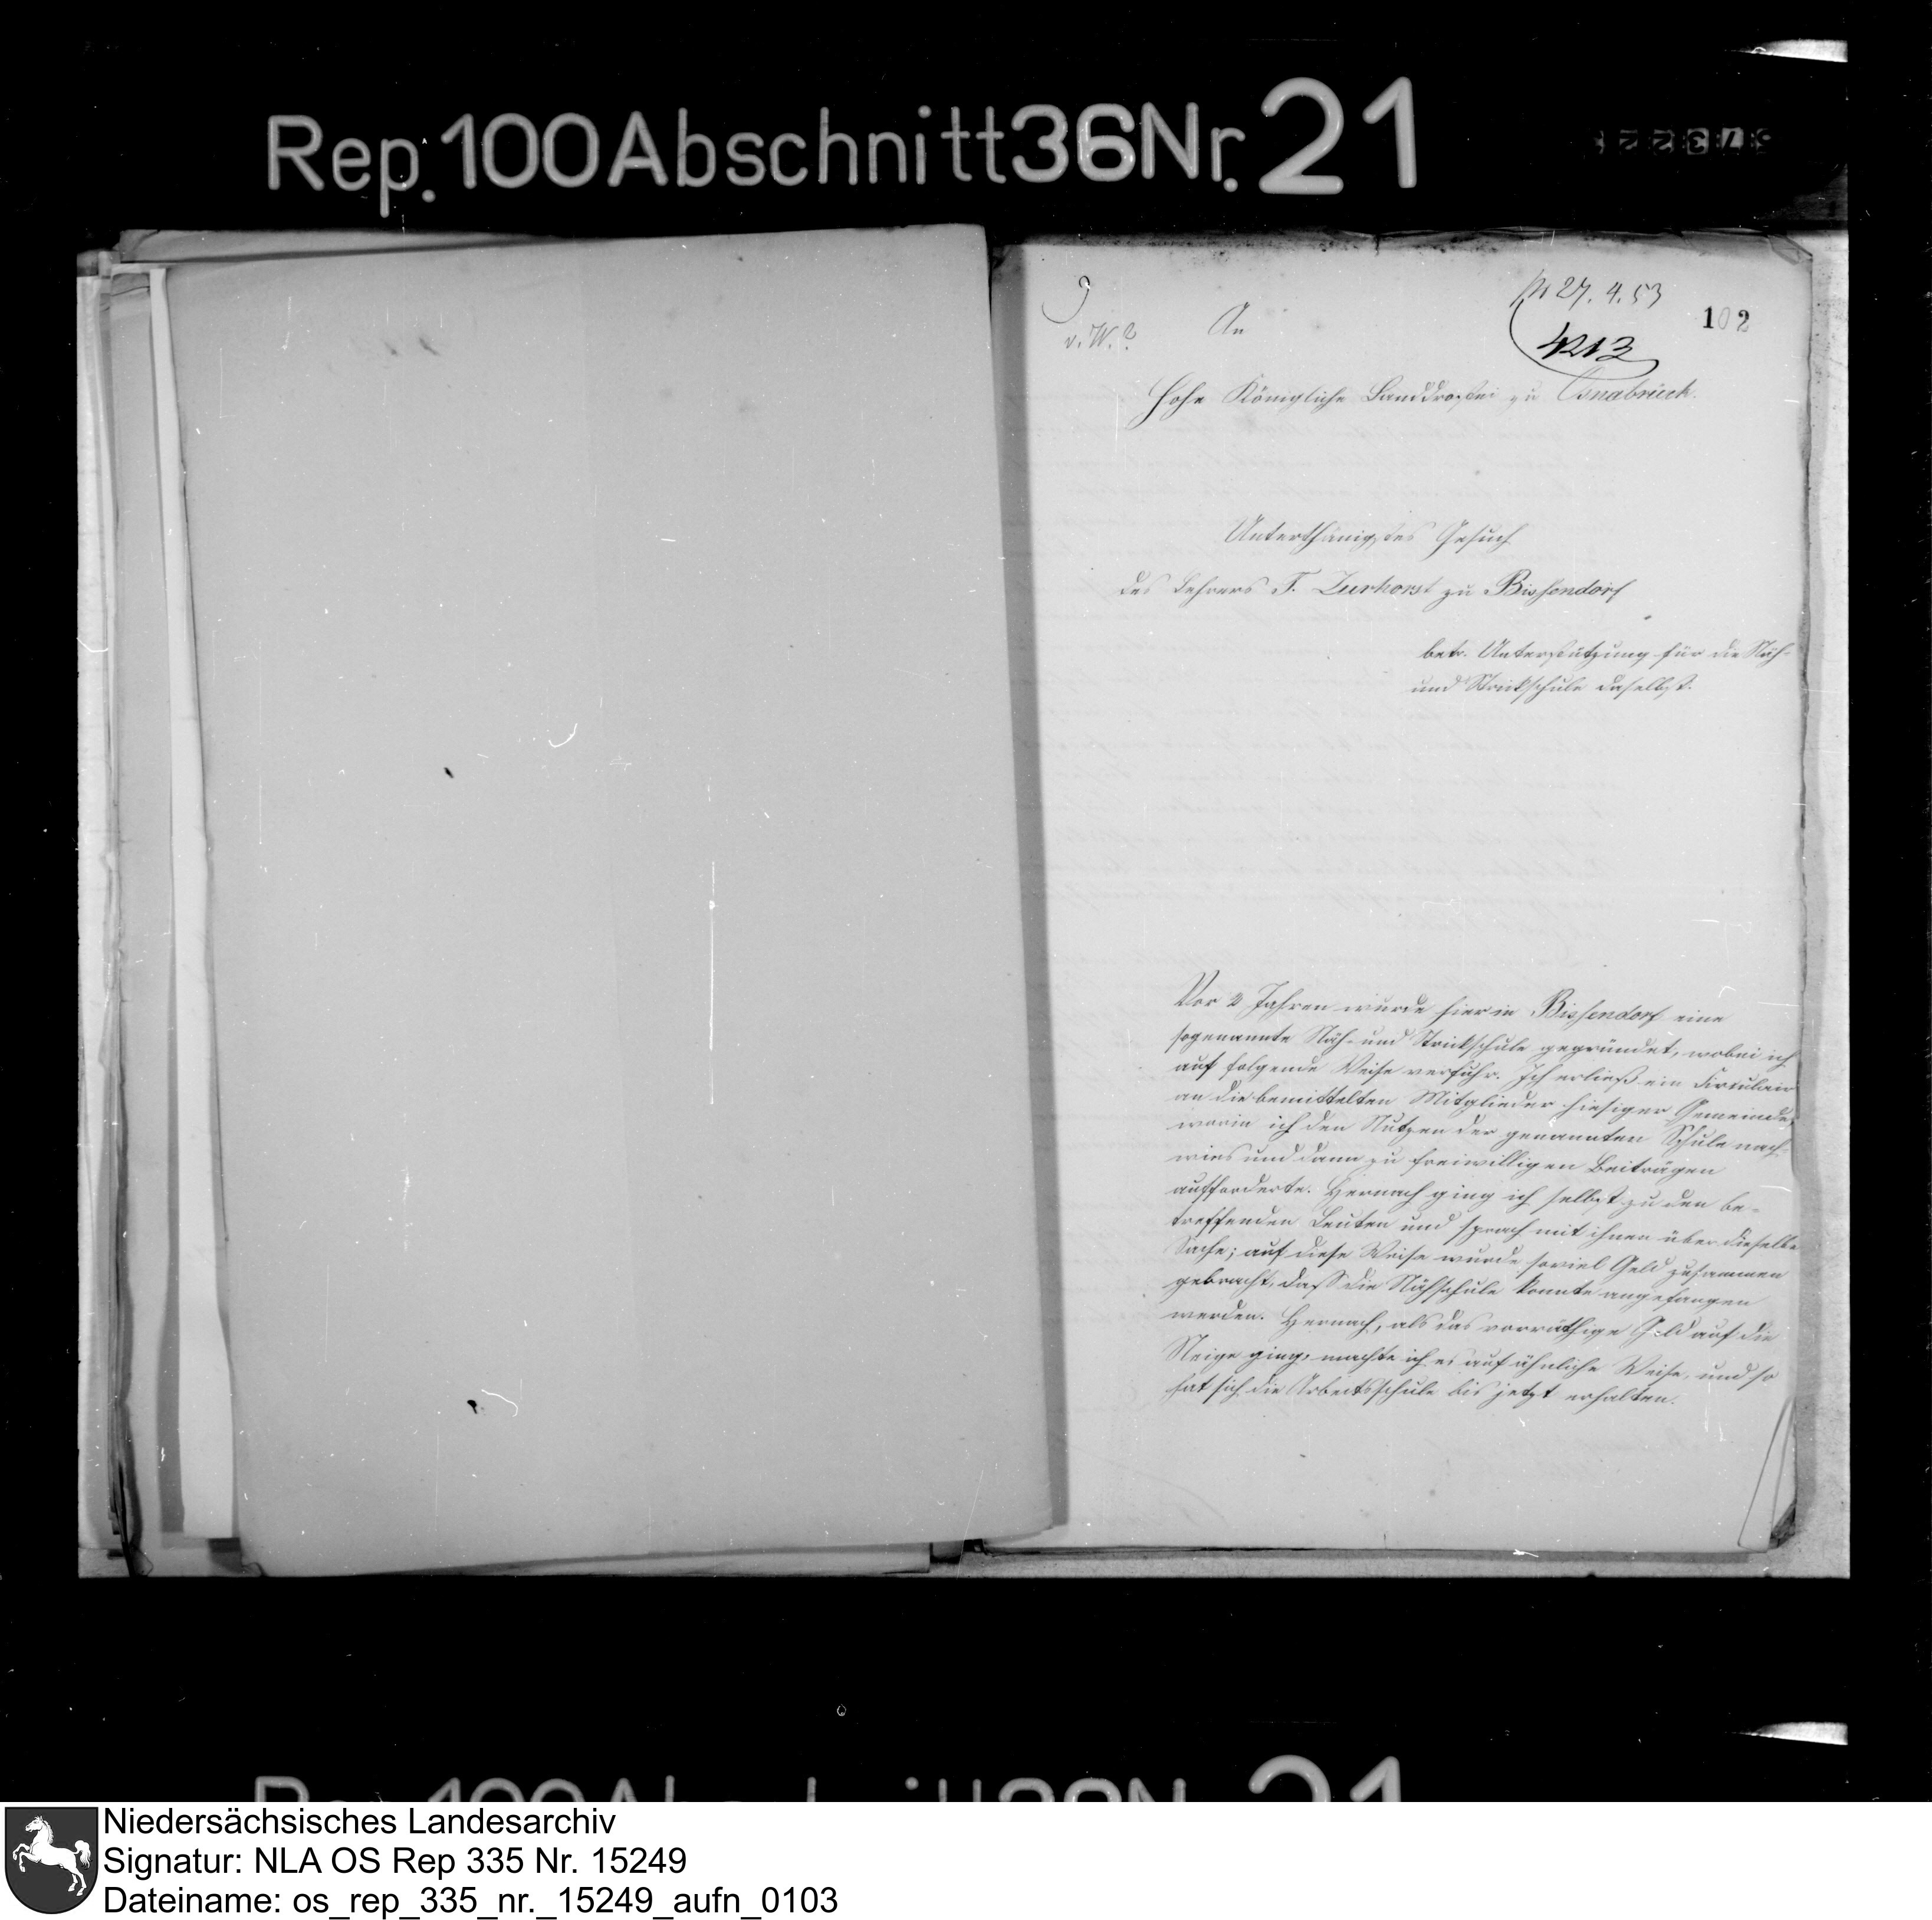 Rep. 100 Abschnitt 36 Nr. 21
pr 27. 4. 53
102
4213
v. W.
An
Hohe Königliche Landdrostei zu Osnabrück.
Unterthänigstes Gesuch
des Lehrers F. Zurhorst zu Bissendorf
betr. Unterstützung für die Näh-
und Strickschule daselbst.
Vor 2 Jahren wurde hier in Bissendorf eine
sogenannte Näh- und Strickschule gegründet, wobei ich
auf folgende Weise verfuhr. Ich erließ ein Circulair
an die bemittelten Mitglieder hiesiger Gemeinde,
worin ich den Nutzen der genannten Schule nach-
wies und dann zu freiwilligen Beiträgen
aufforderte. Hernach ging ich selbst zu den be-
treffenden Leuten und sprach mit ihnen über dieselbe
Sache; auf diese Weise wurde soviel Geld zusammen
gebracht, daß die Nähschule konnte angefangen
werden. Hernach, als das vorräthige Geld auf die
Neige ging, machte ich es auf ähnliche Weise, und so
hat sich die Arbeitsschule bis jetzt erhalten.
Niedersächsisches Landesarchiv
Signatur: NLA OS Rep 335 Nr. 15249
Dateiname: os_rep_335_nr._15249_aufn_0103